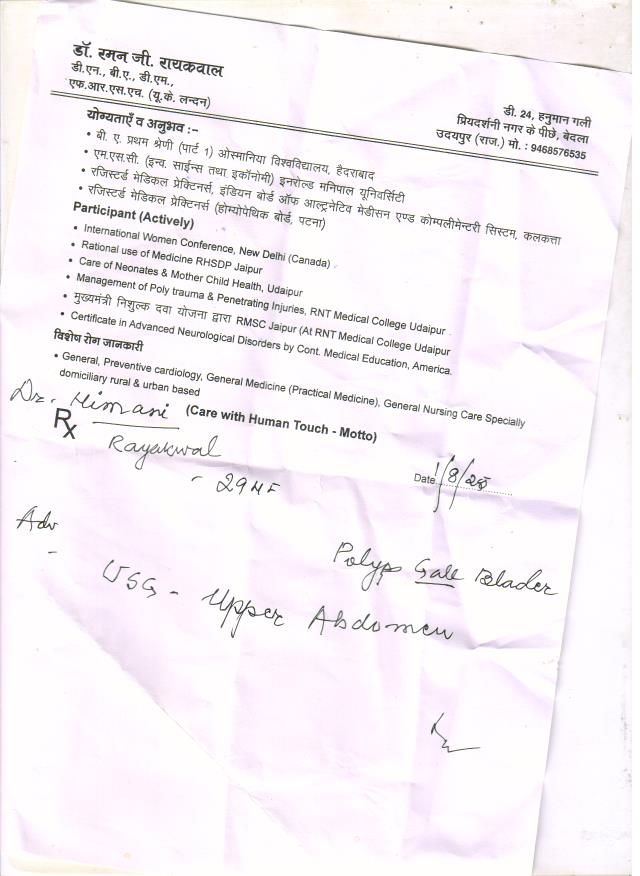 डॉ. रमन जी. रायकवाल
डी.एन., बी.ए., डी.एम.,
एफ.आर.एस.एच. (यू.के. लन्दन)
डी. 24, हनुमान गली
प्रियदर्शनी नगर के पीछे, बेदला
उदयपुर (राज.) मो. : 9468576535
योग्यताएँ व अनुभव :-
• बी. ए. प्रथम श्रेणी (पार्ट 1) ओस्मानिया विश्वविद्यालय, हैदराबाद
• एम.एस.सी. (इन्व. साईन्स तथा इकॉनोमी) इनरोल्ड मनिपाल यूनिवर्सिटी
• रजिस्टर्ड मेडिकल प्रेक्टिनर्स, इंडियन बोर्ड ऑफ आल्ट्रनेटिव मेडीसन एण्ड कोम्पलीमेन्टरी सिस्टम, कलकत्ता
• रजिस्टर्ड मेडिकल प्रेक्टिनर्स (होम्योपेथिक बोर्ड, पटना)
Participant (Actively)
• International Women Conference, New Delhi (Canada)
• Rational use of Medicine RHSDP Jaipur
• Care of Neonates & Mother Child Health, Udaipur
• Management of Poly trauma & Penetrating Injuries, RNT Medical College Udaipur
• मुख्यमंत्री निशुल्क दवा योजना द्वारा RMSC Jaipur (At RNT Medical College Udaipur
• Certificate in Advanced Neurological Disorders by Cont. Medical Education, America.
विशेष रोग जानकारी
• General, Preventive cardiology, General Medicine (Practical Medicine), General Nursing Care Specially
domiciliary rural & urban based
(Care with Human Touch - Motto)
Dr. Himani
Rx
Rayakwal
Date 1/8/25
- 29
Adv
-
Polyp Gall Blader
USG - Upper Abdomen